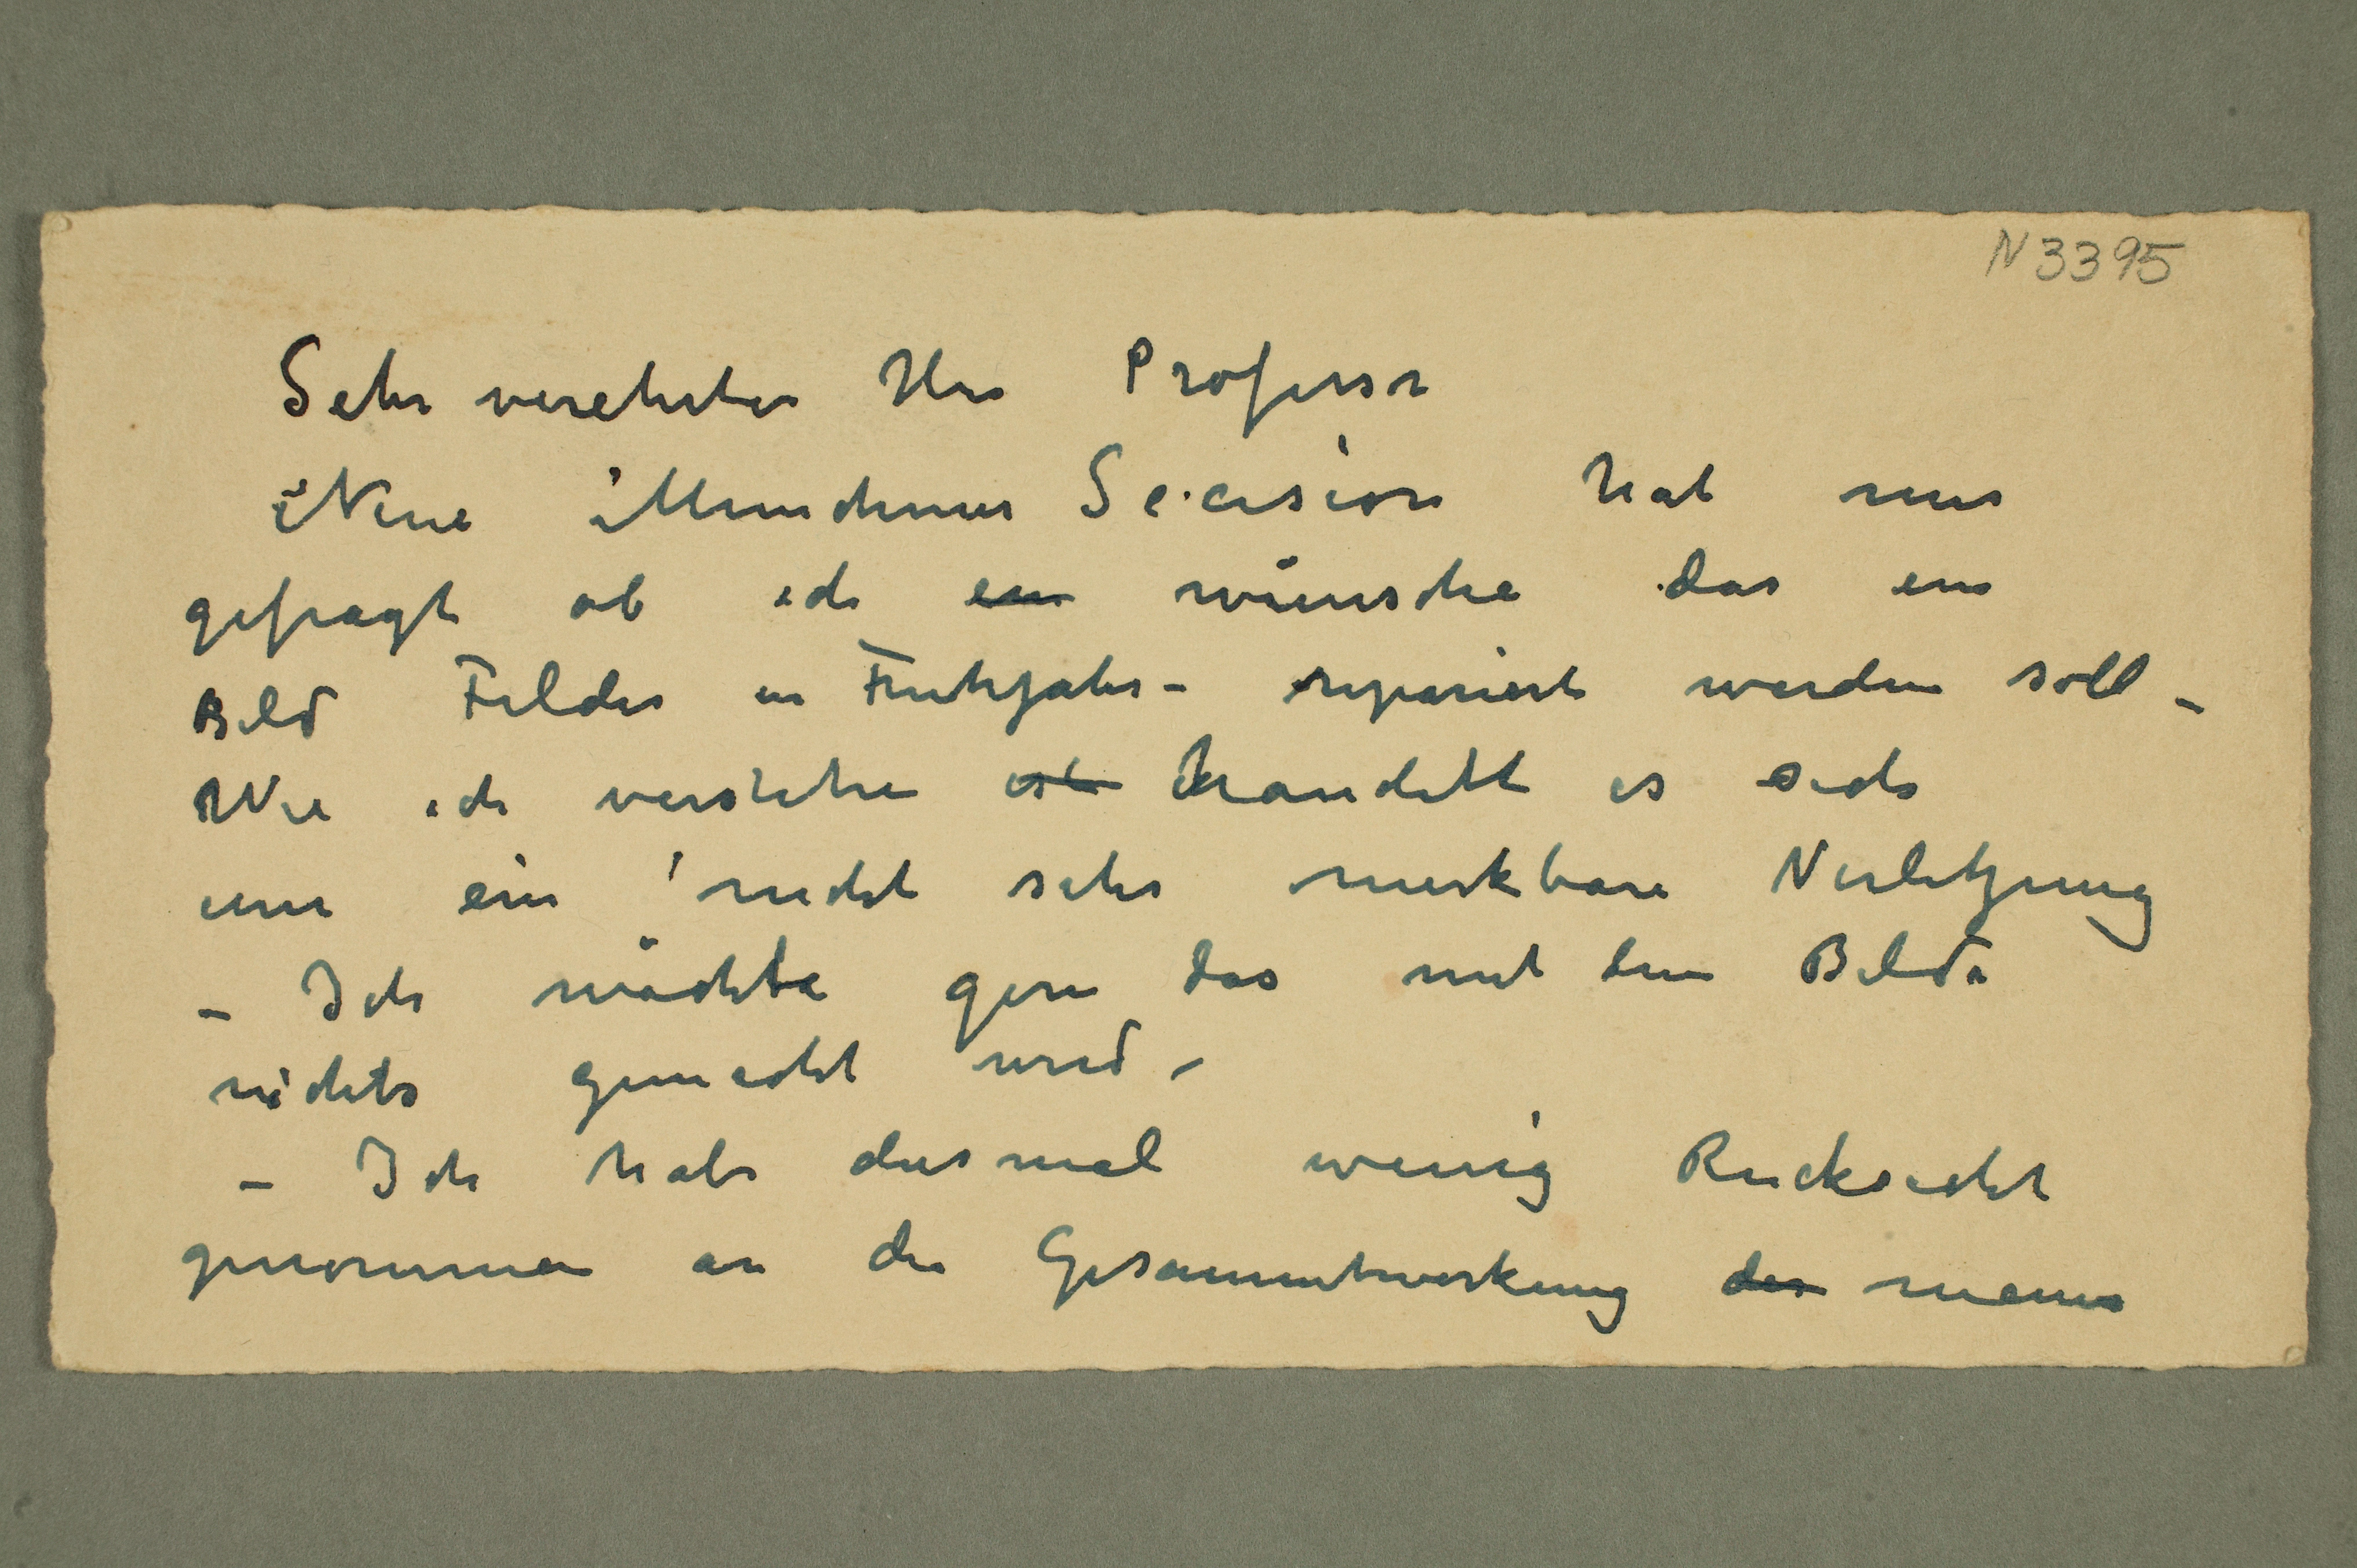 N 3395
Sehr verehrter Herr Professor
Neue Münchener Secession hat mir
gefragt ob ich ein wünsche das ein
Bild Felder im Fruhjahr – repariert werden soll –
Wie ich verstehe ist handelt es sich
um ein nicht sehr merkbare Verletzung
– Ich möchte gern das mit dem Bilde
nichts gemacht wird –
– Ich habe diesmal wenig Rucksicht
genommen an die Gesammtwirkung der meiner